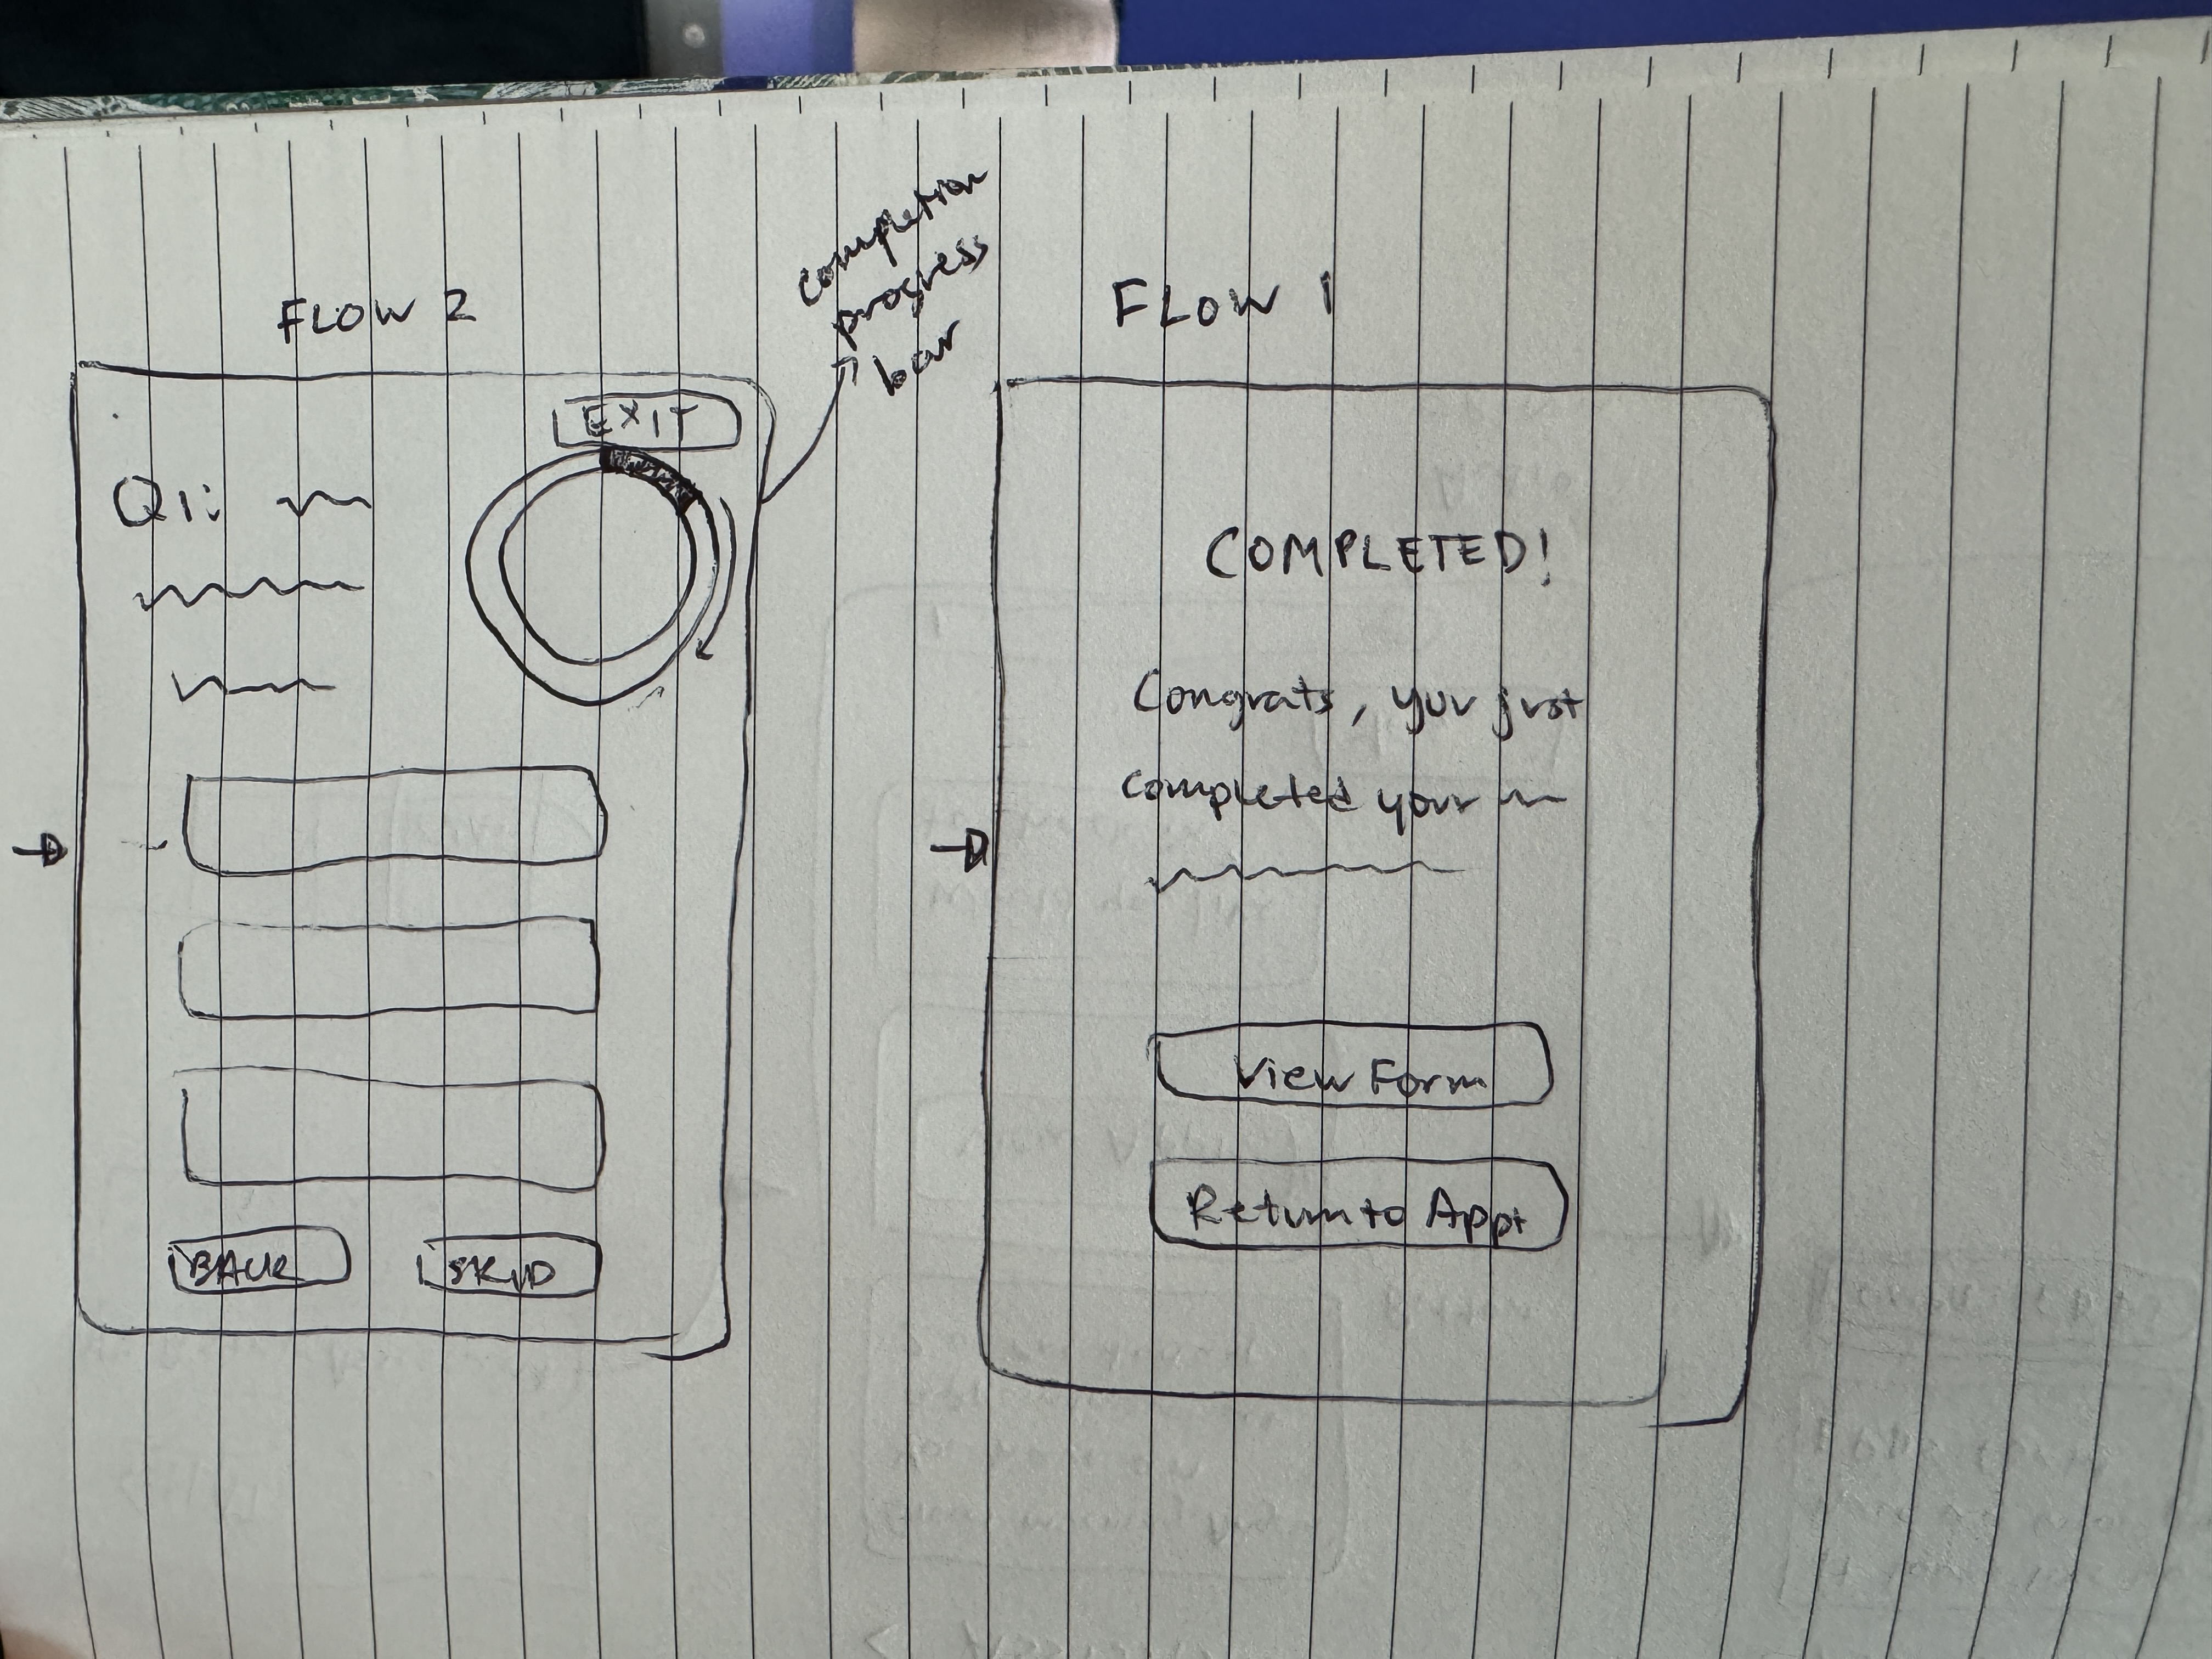 FLOW 2
completion
progress
bar
EXIT
Q1:
BACK
SKIP
FLOW 1
COMPLETED!
Congrats, you just
completed your
View Form
Return to Appt